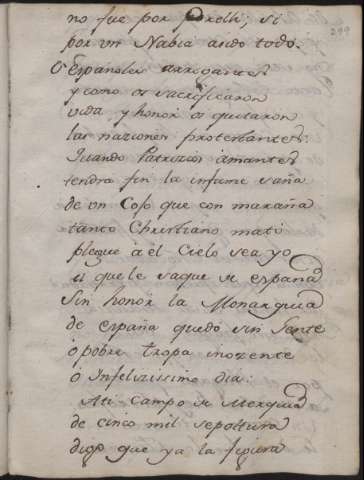 no fue por perelli, si
por vn Nabia ando todo.
O Españoles arrogantes
y como os sacrificaron
vida y honor os quitaron
las naziones protestantes
Quando Patrizios amantes
tendra fin la infame saña
de vn Coso que con maraña
tanto Christiano mati
plegue à él Cielo sea yo
il que le saque de españa
Sin honor la Monarquia
de españa quedó sin Jente
ò pobre tropa inozente
ò Infelizissimo dia:
Al Campo de Merquia
de cinco mil sepoltura
digo que ya la figura